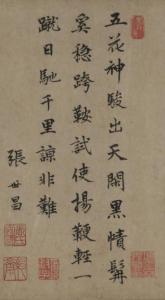 五花神駿出天閑黑幘髯
奚穩跨鞍試使揚鞭輕一
蹴日馳千里諒非難
張世昌